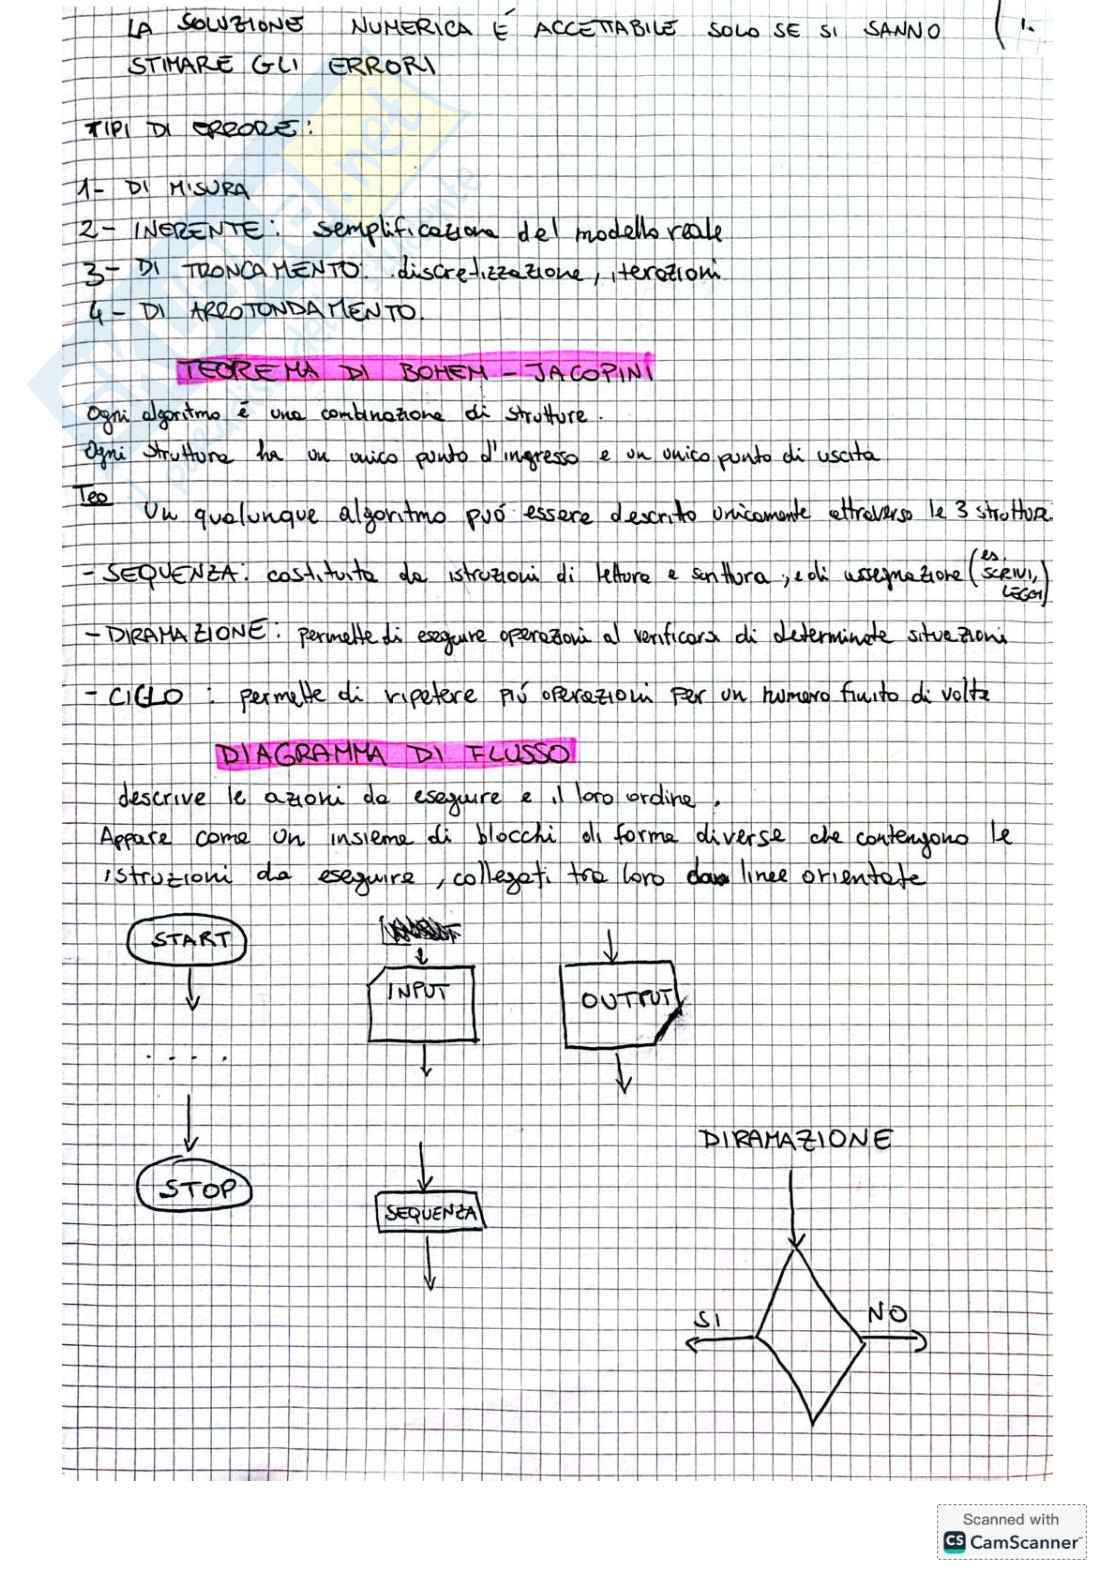 LA SOLUZIONE NUMERICA É ACCETTABILE SOLO SE SI SANNO
1.
STIMARE GLI ERRORI
TIPI DI ERRORE:
1- DI MISURA
2- INERENTE: semplificazione del modello reale
3- DI TRONCAMENTO: discretizzazione, iterazioni
4- DI ARROTONDAMENTO.
TEOREMA DI BOHEM - JACOPINI
Ogni algoritmo é una combinazione di strutture.
Ogni struttura ha un unico punto d'ingresso e un unico punto di uscita
Teo Un qualunque algoritmo puó essere descritto unicamente attraverso le 3 strutture
- SEQUENZA: costituita da istruzioni di lettura e scrittura, e di assegnazione (es. SCRIVI, LEGGI)
- DIRAMAZIONE: permette di eseguire operazioni al verificarsi di determinate situazioni
- CICLO : permette di ripetere piú operazioni per un numero finito di volte
DIAGRAMMA DI FLUSSO
descrive le azioni da eseguire e il loro ordine.
Appare come un insieme di blocchi di forma diverse che contengono le
istruzioni da eseguire, collegati tra loro da linee orientate
START
INPUT
OUTPUT
....
DIRAMAZIONE
STOP
SEQUENZA
SI
NO
Scanned with
CS CamScanner